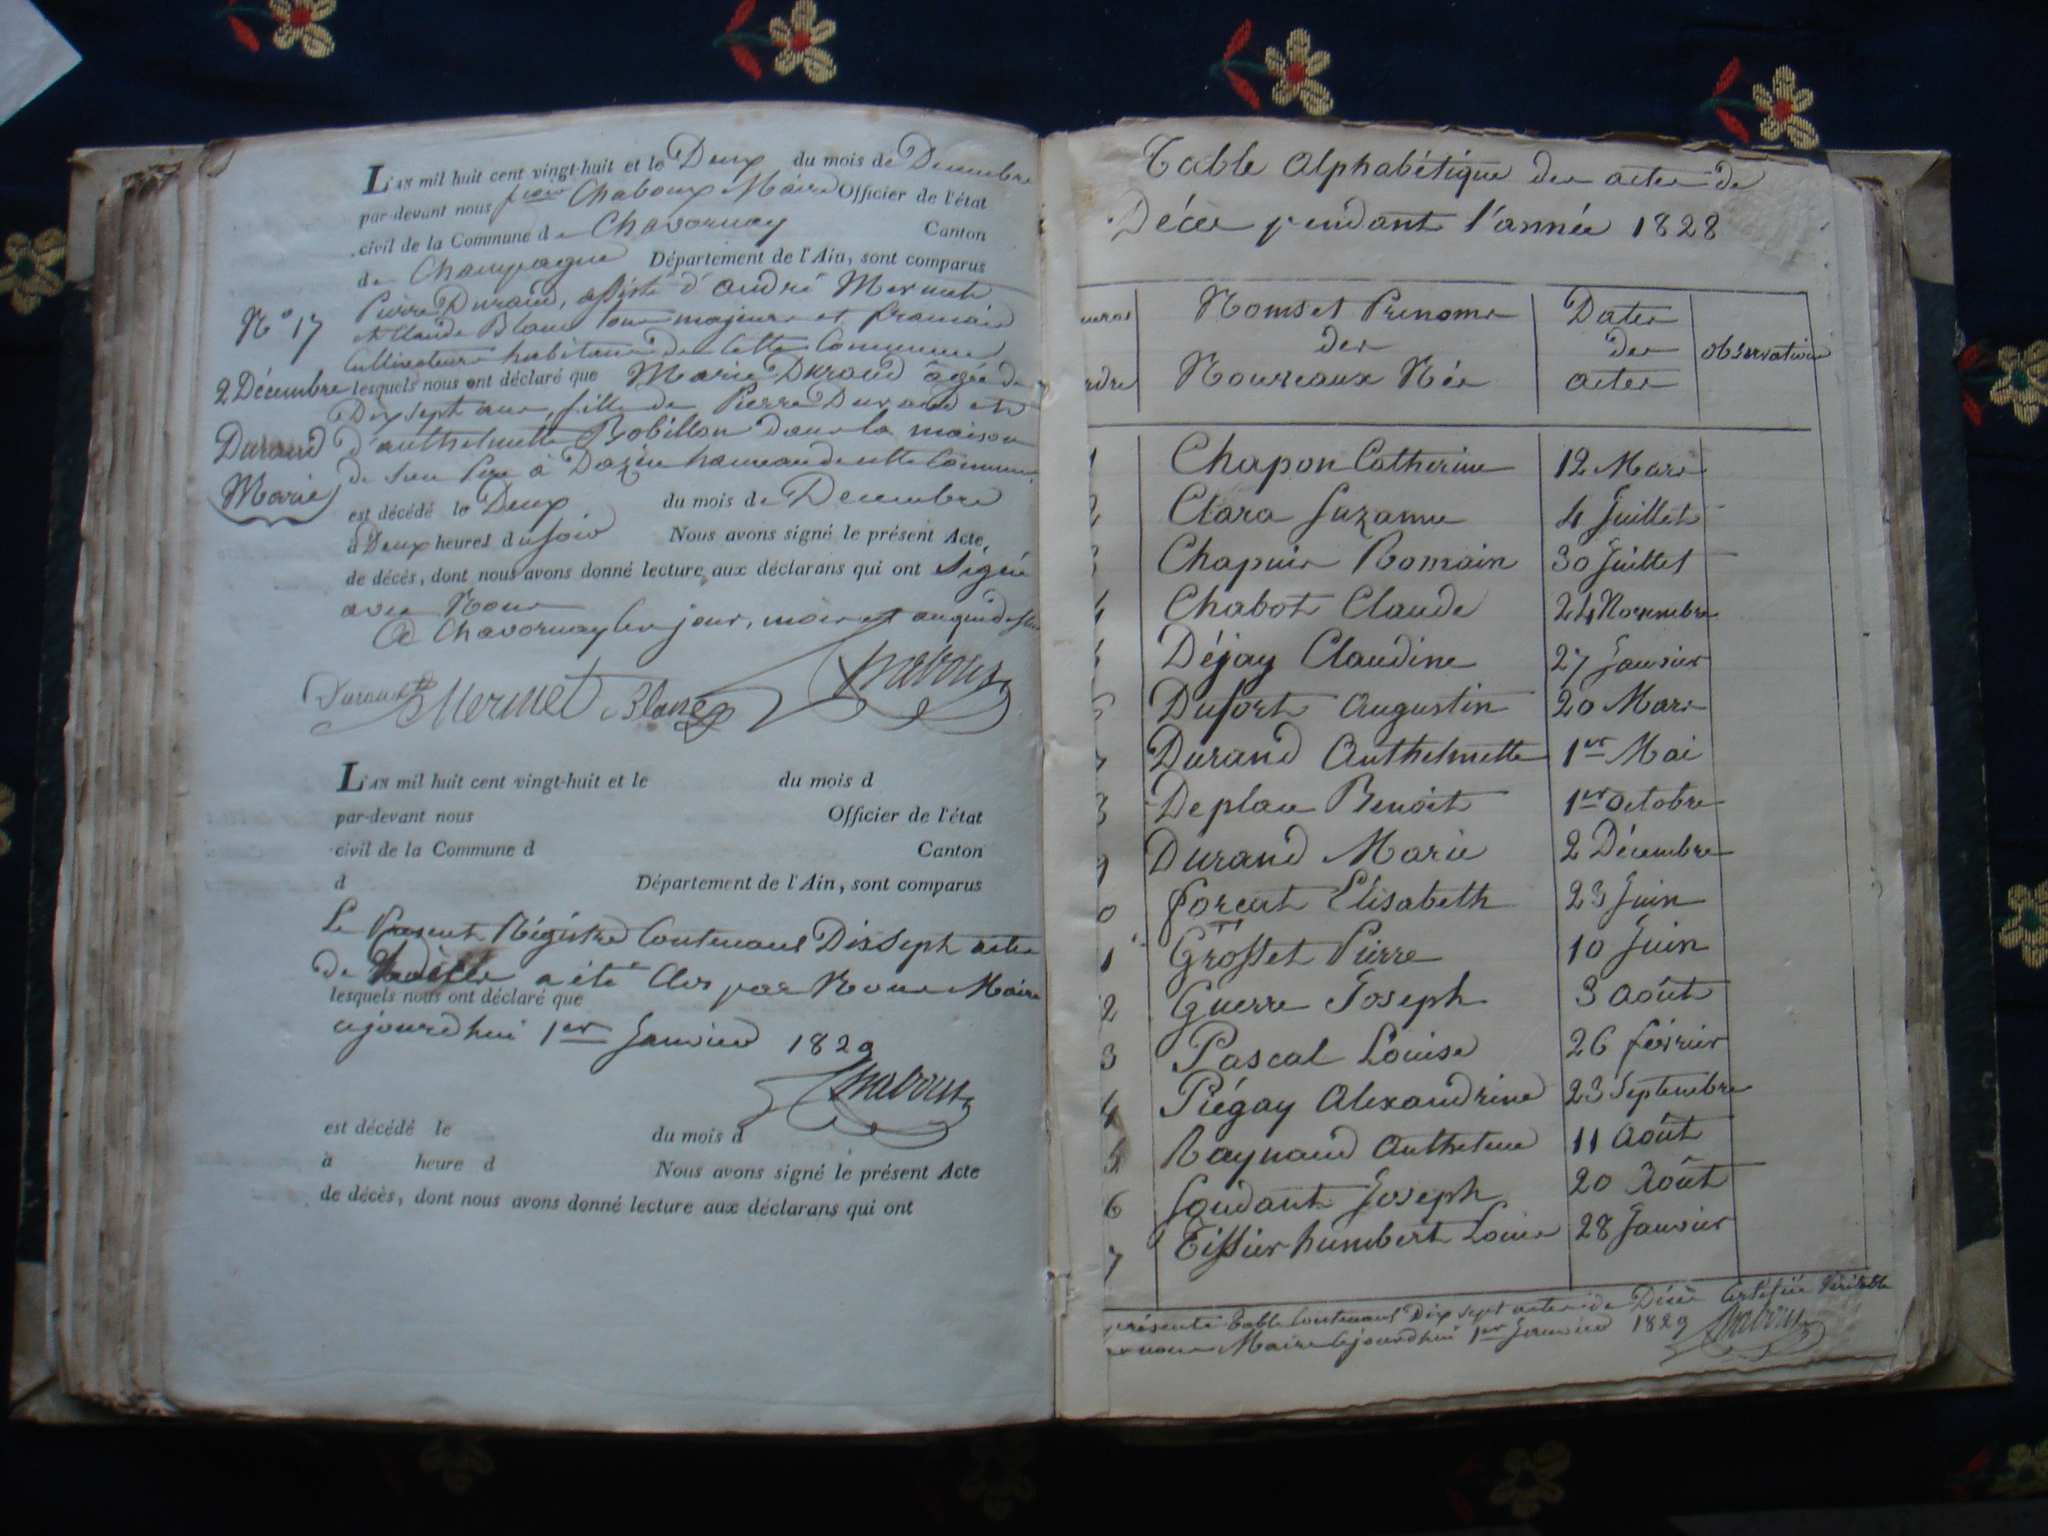 L'AN mil huit cent vingt-huit et le Deux du mois de Decembre
par-devant nous Chaboux Maire Officier de l'état
civil de la Commune de Chavornay Canton
de Champagne Département de l'Ain, sont comparus
Pierre Durand, assisté d'andré Mermet
et Claude Blanc tous majeurs et francais
N.º 17
Cultivateurs habitans de cette Commune
2 Décembre lesquels nous ont déclaré que Marie Durand âgée de
Dix sept ans, fille de Pierre Durand et
Durand d'anthelmette Robillon dans la maison
de son Père à Dazin hameau de cette Commune
Marie est décédé le Deux du mois de Decembre
à Deux heures du soir Nous avons signé le présent Acte,
de décès, dont nous avons donné lecture aux déclarans qui ont Signé
avec Nous
A Chavornay les jour, mois et an que dessus
Durand Mermet Blanc Chaboux
L'AN mil huit cent vingt-huit et le du mois d
par-devant nous Officier de l'état
civil de la Commune d Canton
d Département de l'Ain, sont comparus
Le Present Régistre Contenant Dis Sept actes
de décès a été Clos par Nous Maire
lesquels nous ont déclaré que
ajourdhui 1er Janvier 1829
Chaboux
est décédé le du mois d
à heure d Nous avons signé le présent Acte
de décès, dont nous avons donné lecture aux déclarans qui ont
Table Alphabétique des actes de
Décès pendant l'année 1828
Noms et Prenoms Dates
des des observations
rdre Nouveaux Nés actes
1 Chapon Catherine 12 Mars
2 Clara Suzanne 4 Juillet
3 Chapuis Romain 30 Juillet
4 Chabot Claude 24 Novembre
5 Déjay Claudine 27 Janvier
6 Dufort Augustin 20 Mars
7 Durand Anthelmette 1er Mai
8 Deplace Benoit 1er octobre
9 Durand Marie 2 Décembre
0 forcat Elisabeth 23 Juin
1 Grosset Pierre 10 Juin
2 Guerre Joseph 3 Août
3 Pascal Louise 26 février
4 Piégay Alexandrine 23 Septembre
5 Raynaud Anthelme 11 Août
6 Soudant Joseph 20 Août
7 Tissier humbert Louis 28 Janvier
présente Table Contenant Dix sept actes de Décès Certifiée Véritable
nous Maire Cejourdhui 1er Janvier 1829 Chaboux